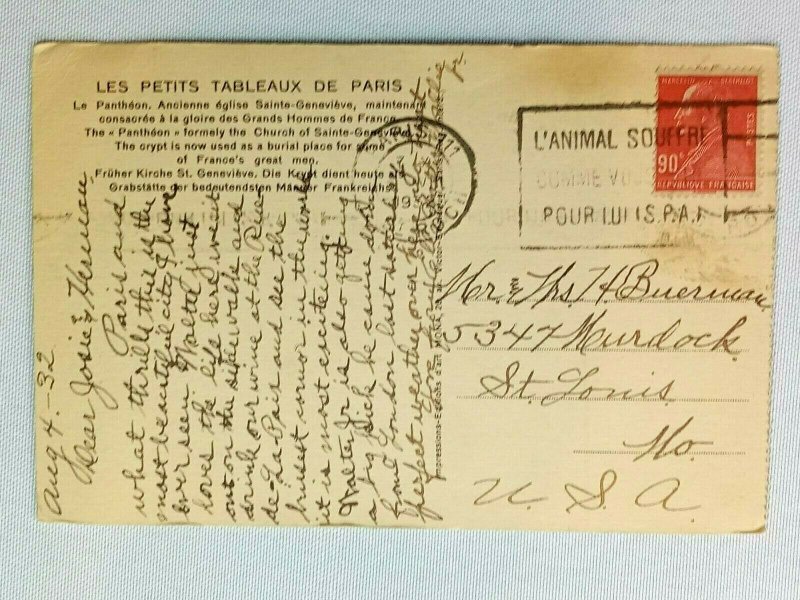 LES PETITS TABLEAUX DE PARIS
Le Panthéon. Ancienne église Sainte-Geneviève, maintenant
consacrée à la gloire des Grands Hommes de France.
The « Panthéon » formely the Church of Sainte-Geneviève.
The crypt is now used as a burial place for some
of France's great men.
Früher Kirche St. Geneviève. Die Krypt dient heute als
Grabstätte der bedeutendsten Männer Frankreichs.
Aug 4.-32
Dear Josie & Herman,
Paris and
what thrills this is the
most beautiful city I have
ever seen Walter just
loves the life here, we sit
out on the side walks and
drink our wine at the Rue
de-La Paix and see the
busest cornor in the world
it is most exciteing.
Walter Jr is also getting
a big kick he came down
from London last
perfect weather over here
MARCELIN BERTHELOT
POSTES
90
RÉPUBLIQUE FRANÇAISE
L'ANIMAL SOUFFRE
COMME VOUS
POUR LUI (S.P.A.)
Mr & Mrs H Buerman
5347 Murdock
St. Louis
Mo.
U. S. A